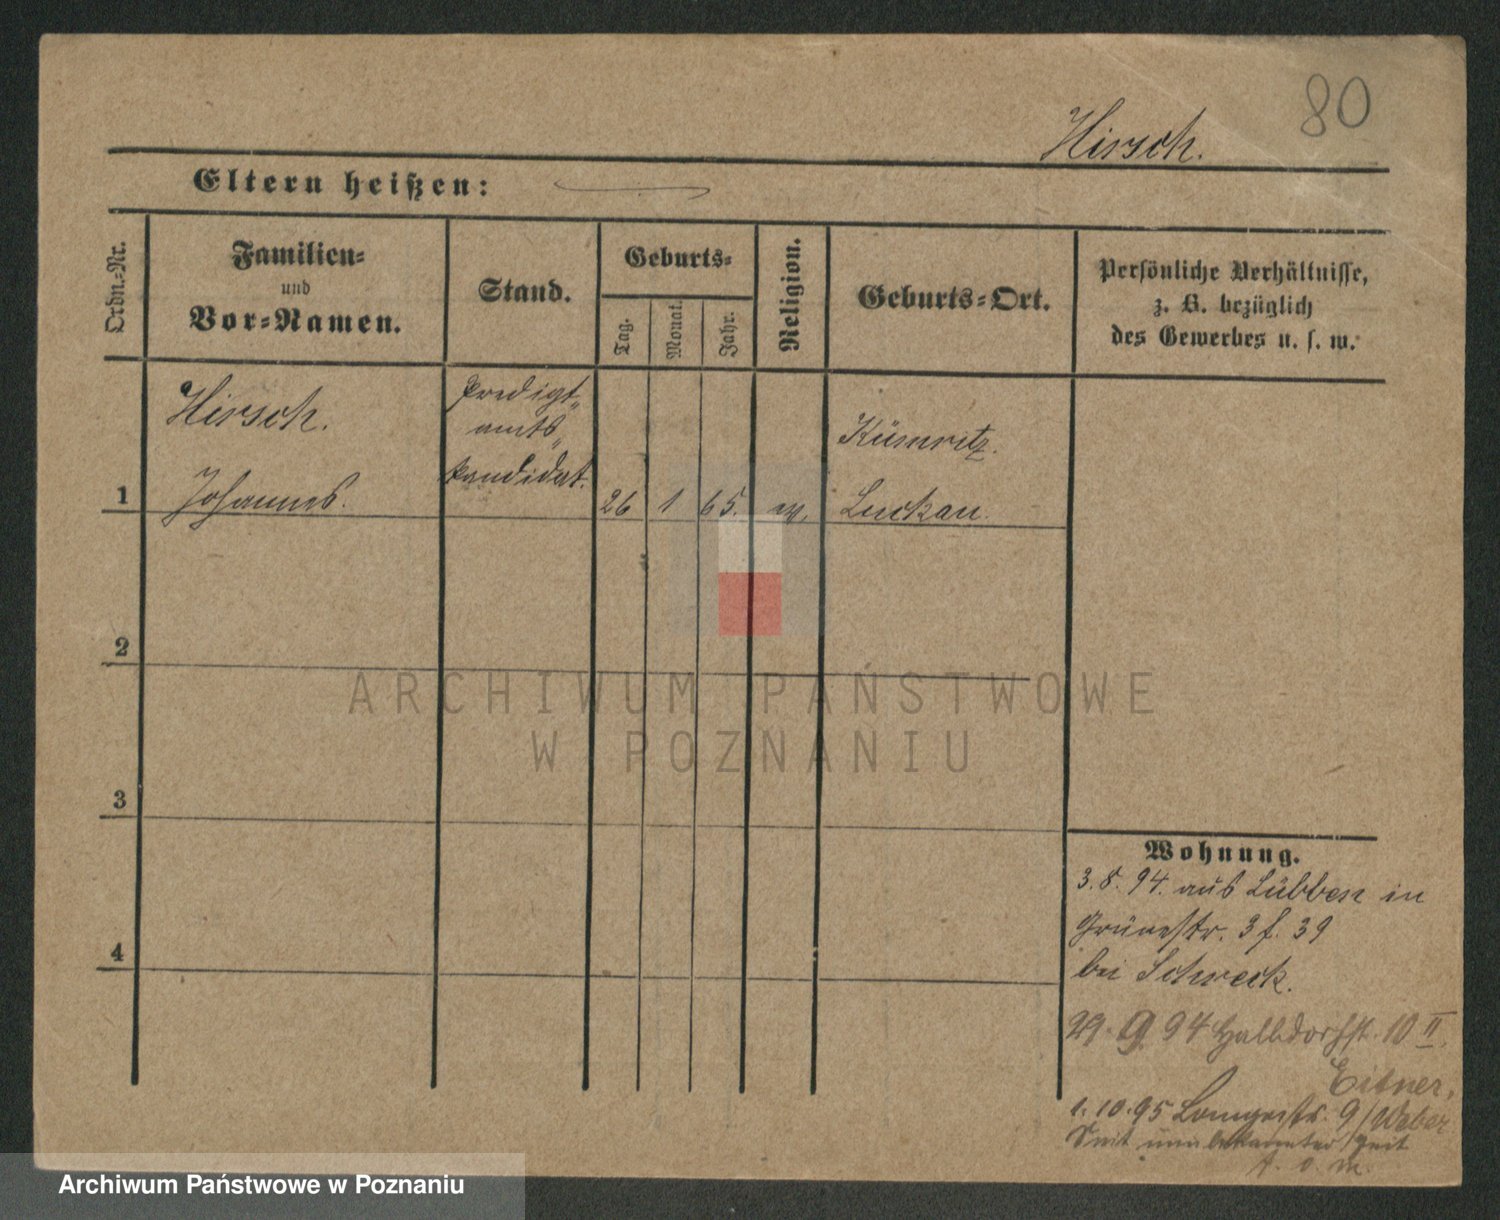 80
Hirsch.
Eltern heißen:
Ordn.-Nr.
Familien-
und
Vor-Namen.
Stand.
Geburts-
Tag.
Monat.
Jahr.
Religion.
Geburts-Ort.
Persönliche Verhältnisse,
z. B. bezüglich
des Gewerbes u. s. w.
Hirsch.
Predigt„
amts„
Kümritz.
kandidat.
1 Johannes. 26 1 65. ev. Luckau.
2
ARCHIWUM PAŃSTWOWE
W POZNANIU
3
4
Wohnung.
3. 8. 94. aus Lübben in
Grünestr. 3 f. 39
bei Schreck.
29. 9. 94 Halbdorfst. 10 II.
Eitner,
1. 10. 95 9/Weber
Seit unbekannter Zeit
Archiwum Państwowe w Poznaniu